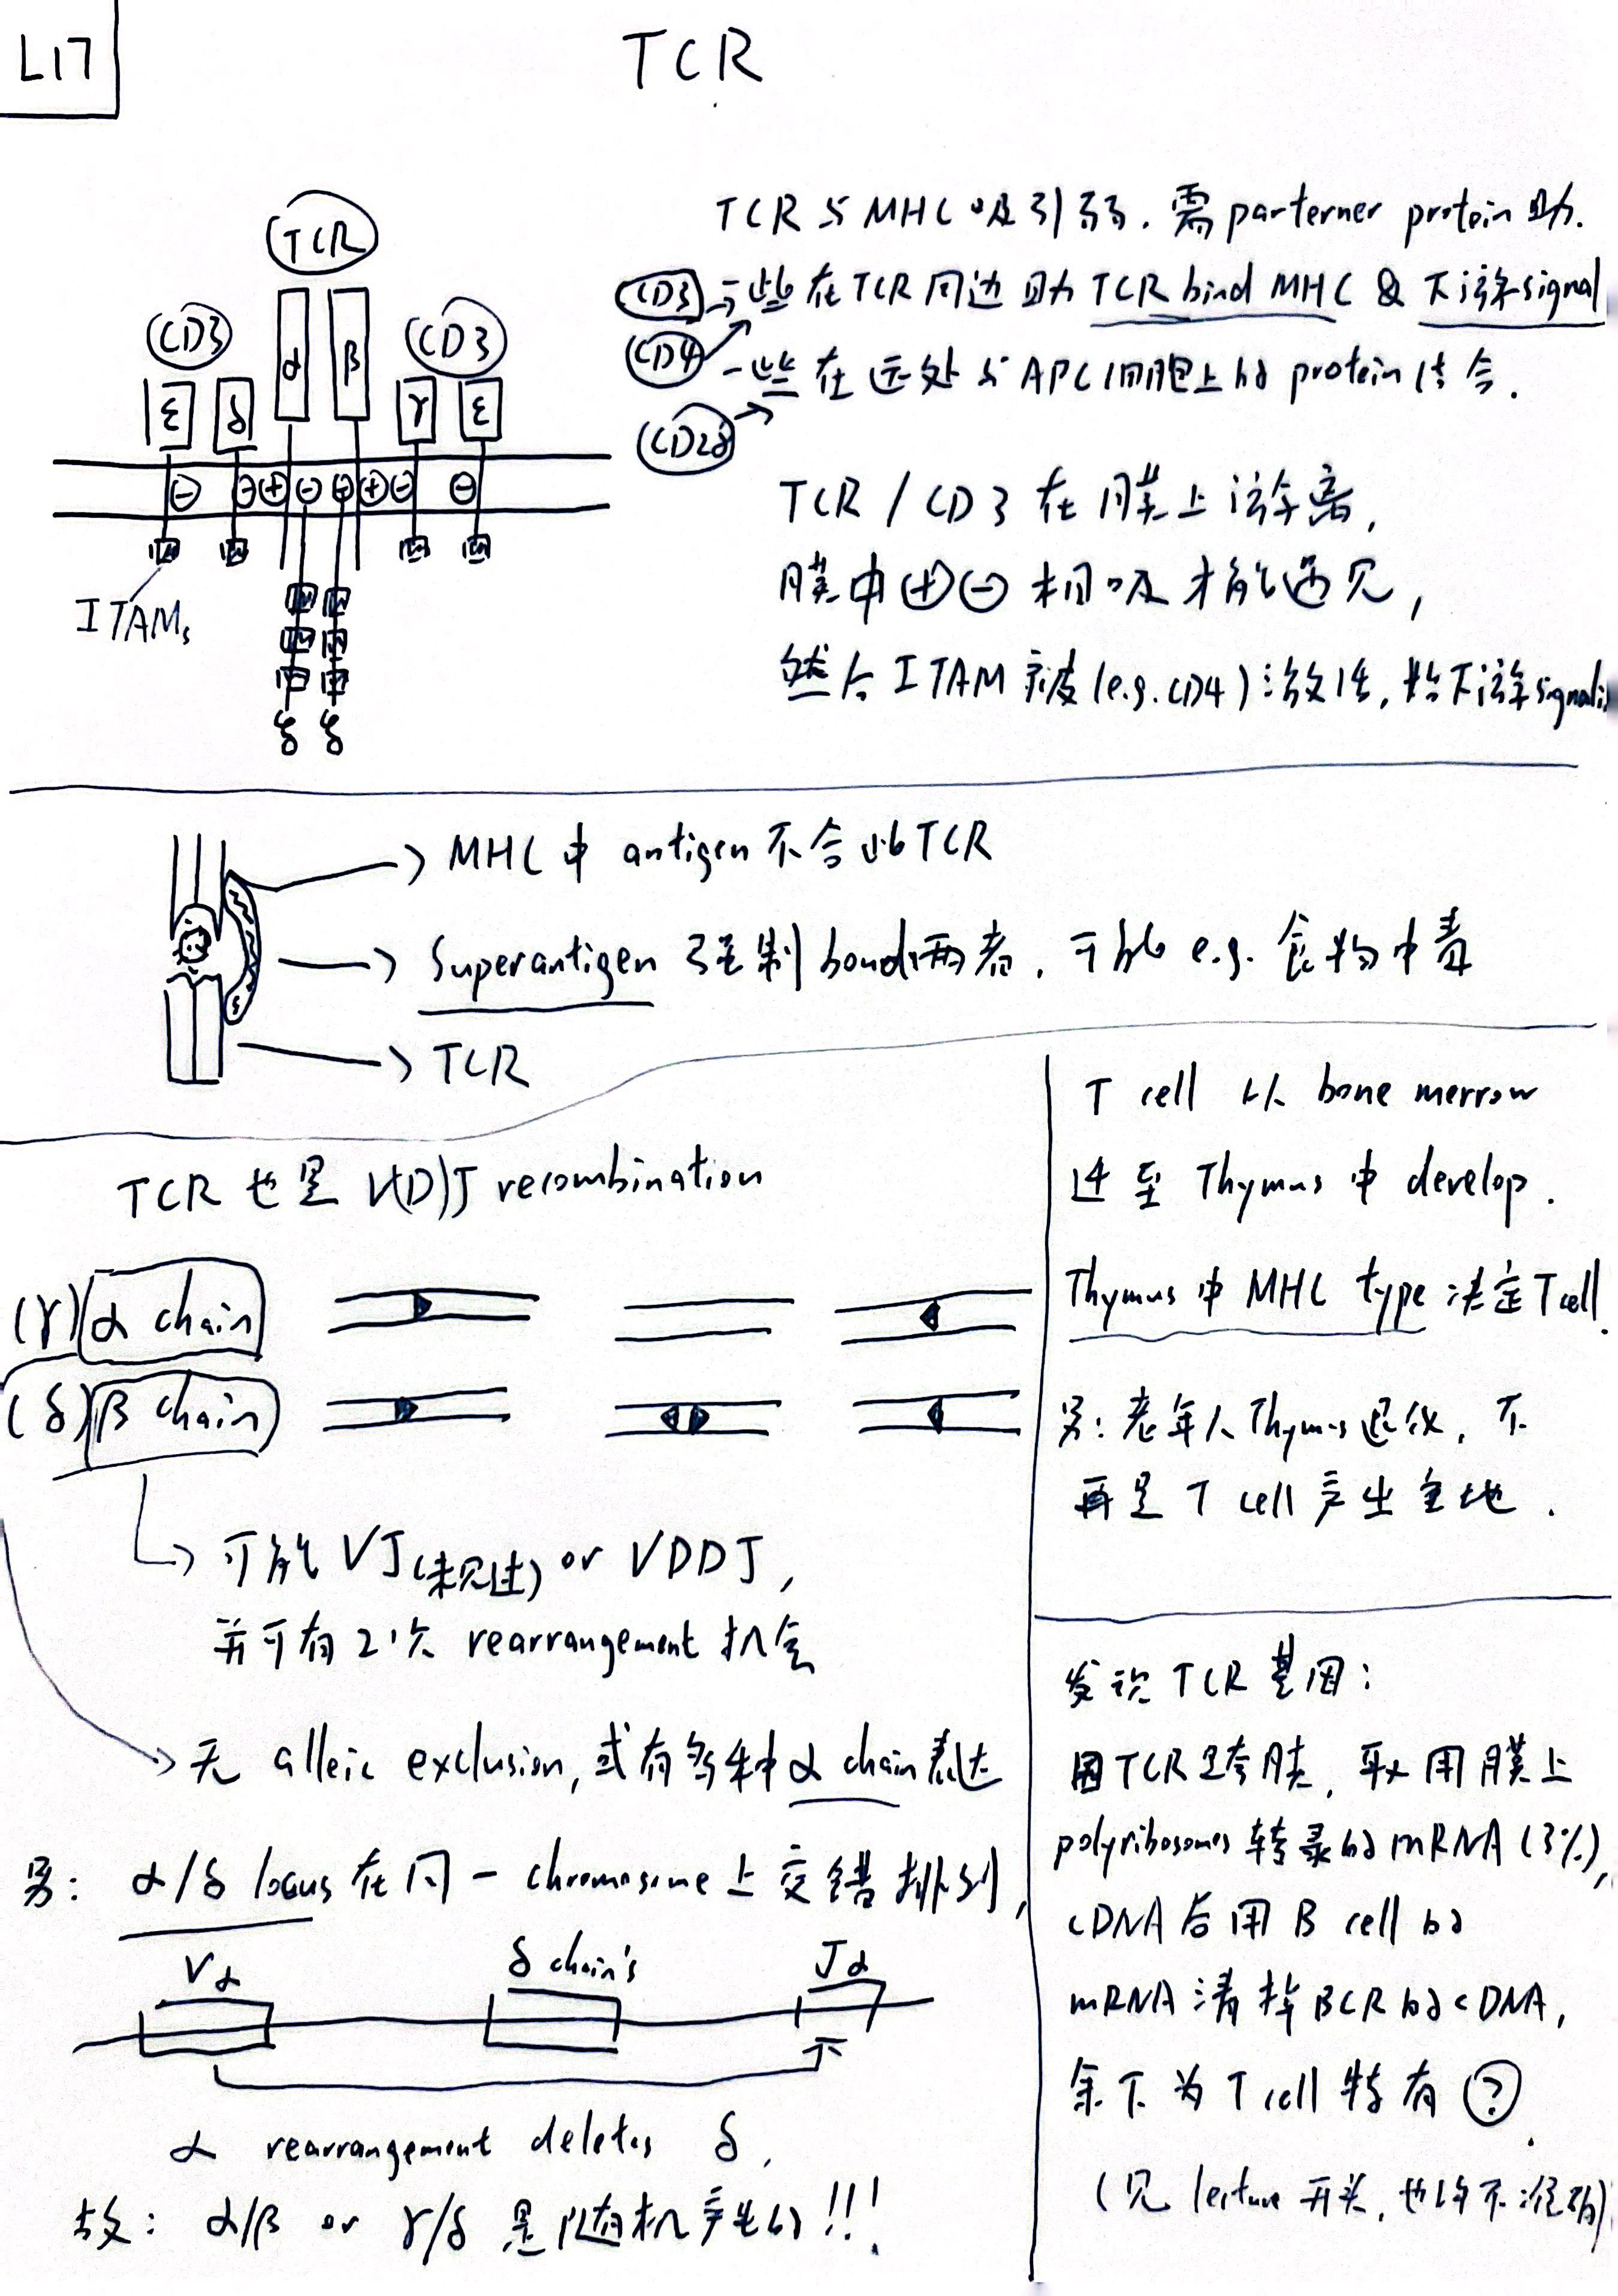 L17
TCR
TCR
CD3
CD3
α
β
ε
δ
γ
ε
⊖
⊖⊕⊖⊖⊕⊖
⊖
ITAMs
ξ ξ
TCR与MHC吸引弱.需parterner protein助.
CD3 一些在TCR周边助TCR bind MHC & 下游signal
CD4 一些在远处与APC细胞上的protein结合.
CD28
TCR/CD3在膜上游离,
膜中⊕⊖相吸才能遇见,
然后ITAM被(e.g.CD4)激活,始下游signaling
MHC中antigen不合此TCR
Superantigen 强制bond两者.可能e.g.食物中毒
TCR
TCR也是V(D)J recombination
(γ) α chain
(δ) β chain
可能VJ(未见过) or VDDJ,
并可有2次 rearrangement 机会
无 alleic exclusion,或有多种α chain表达
另: α/δ locus在同一chromosome上交错排列,
Vα
δ chain's
Jα
α rearrangement deletes δ.
故: α/β or γ/δ 是随机产生的!!!
T cell 从 bone merrow
迁至 Thymus 中 develop.
Thymus中MHC type决定T cell.
另:老年人Thymus退化,不
再是T cell产生主地.
发现TCR基因:
因TCR跨膜,取用膜上
polyribosomes转录的mRNA(3%),
cDNA后用B cell的
mRNA清掉BCR的cDNA,
余下为T cell特有?.
(见lecture开头,也许不准确)